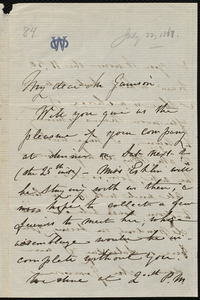 84
July 22, 1868.
W
My dear Mr Garrison
Will you give us the
pleasure of your company
at dinner on Sat. next
(the 25th inst) Miss
will be staying with us then, &
hope to collect a few
friends to meet her, whose
assemblage would be in-
complete without you.
We dine at 2 P.M